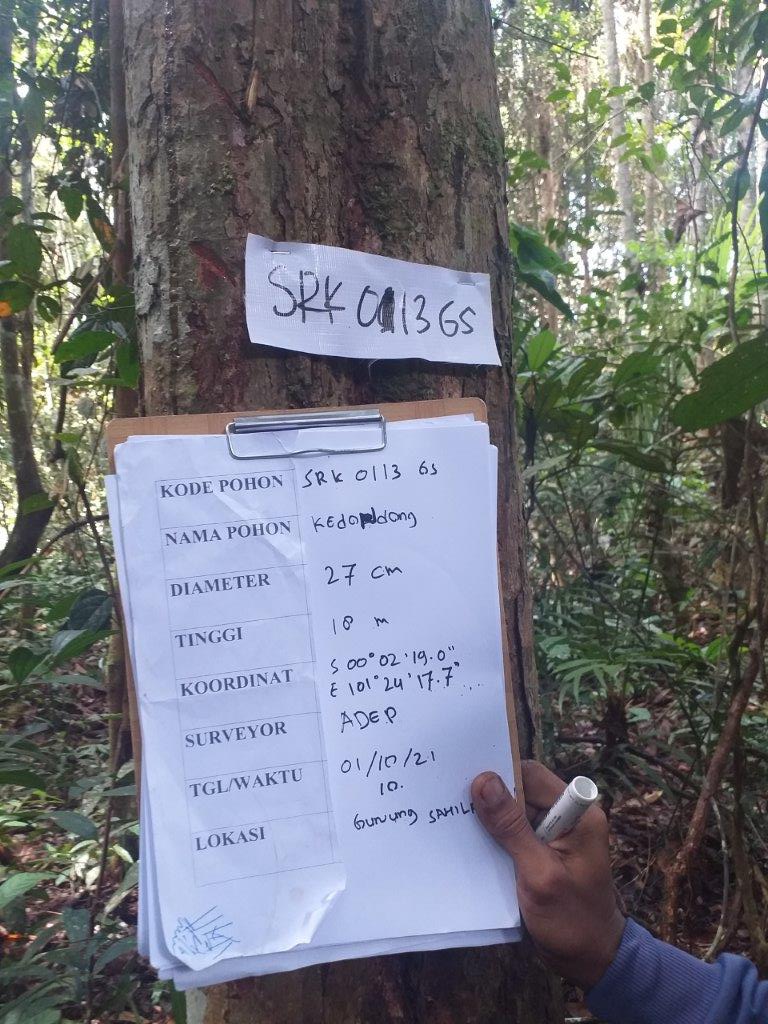 SRK 0113 GS
KODE POHON SRK 0113 GS
NAMA POHON Kedondong
DIAMETER 27 cm
TINGGI 18 m
KOORDINAT S 00°02'19.0"
E 101°24'17.7"
SURVEYOR ADEP
TGL/WAKTU 01/10/21
10.
LOKASI Gunung